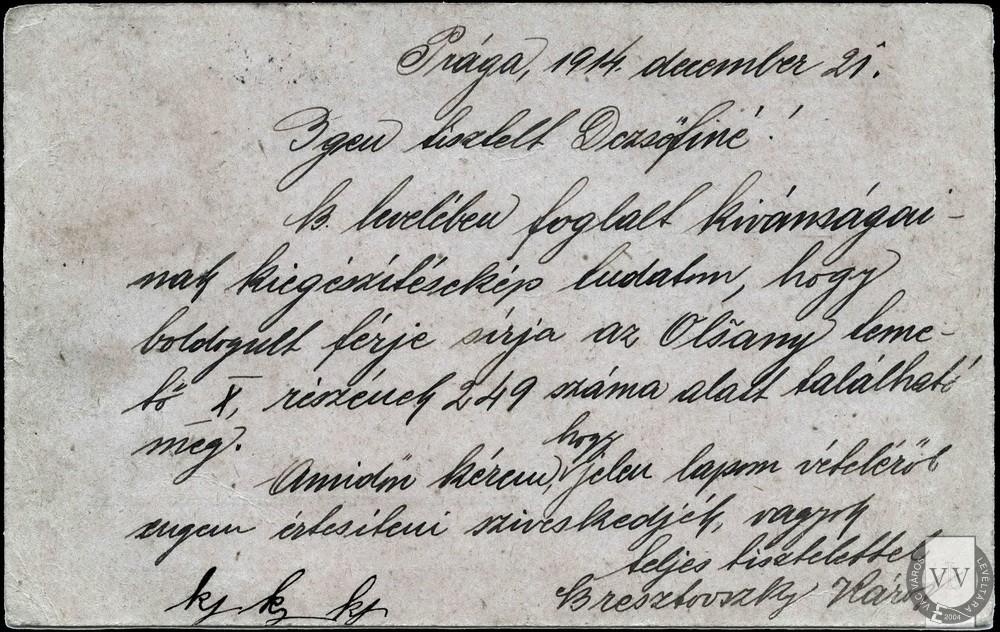 Prága, 1914. december 21.
Igen tisztelt Dezsőfiné!
B. levelében foglalt kivánságai-
nak kiegészítésekép tudatom, hogy
boldogult férje sírja az Olšany teme-
tő X, részének 249 száma alatt található
meg.
hogy
Amidőn kérem, jelen lapom vételéről
engem értesíteni sziveskedjék, vagyok
teljes tisztelettel
Bresztovszky
VV
VÁC VÁROS LEVÉLTÁRA
2004